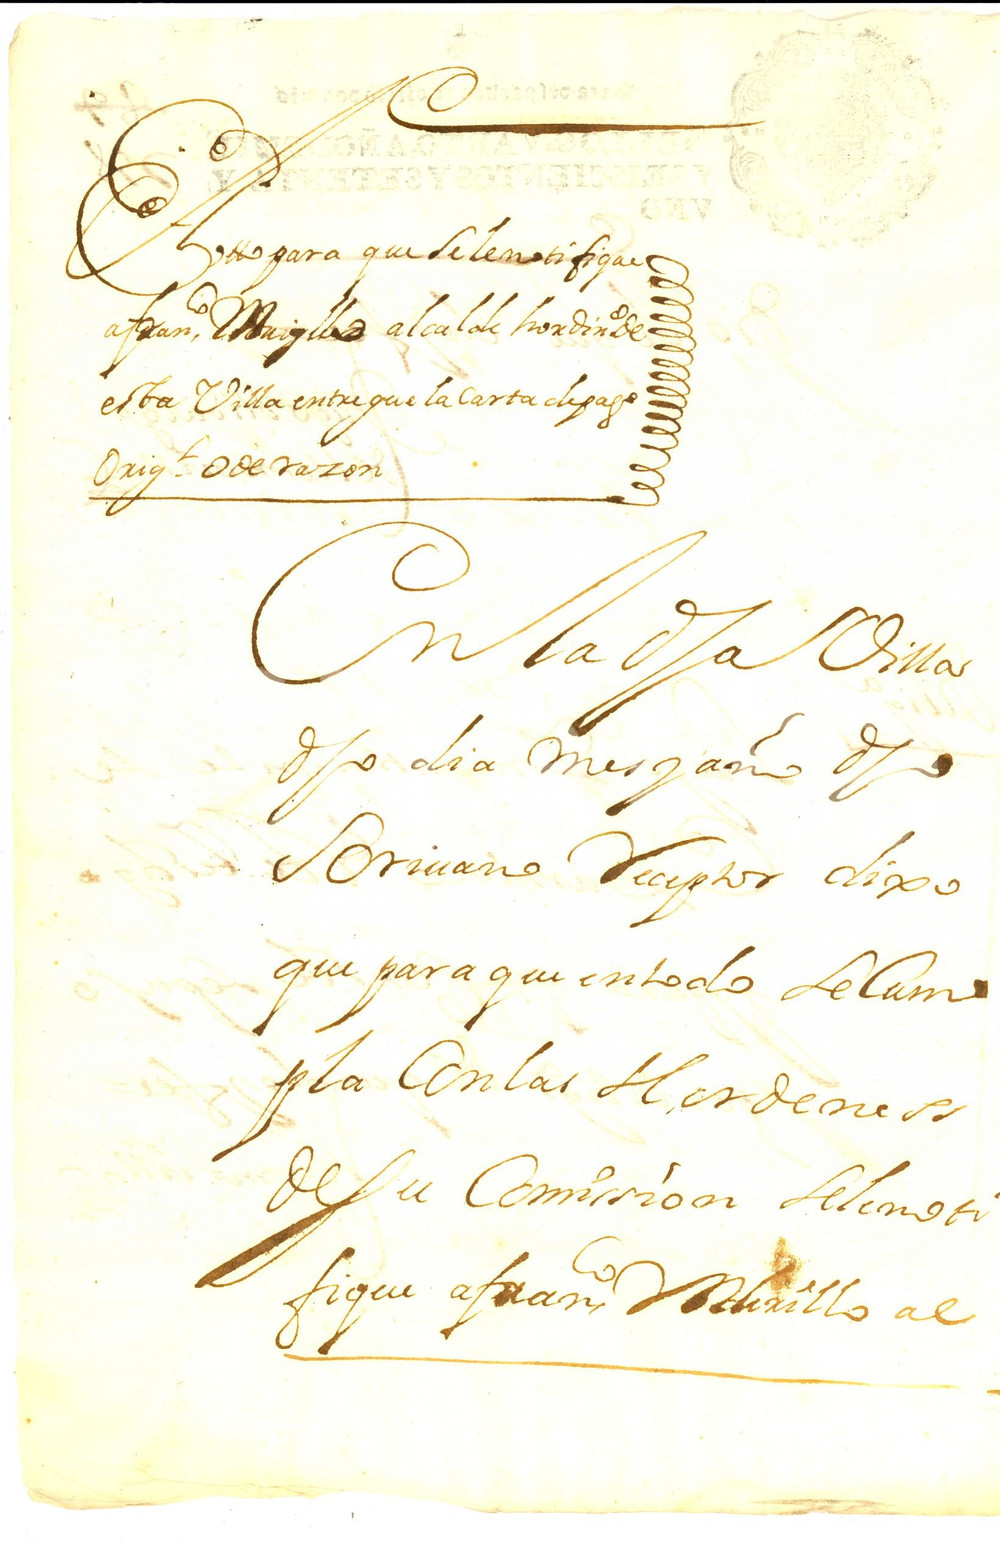 Autto para que se le notifique
a fran.co Murillo alcalde hordin.o de
esta Villa entregue la carta de pago
Orig.l o de razon
En la dha Villa
dho dia mes y año dho
Scriuano Receptor dixo
que para que en todo se Cum
pla Con las Hordenes
de su Comission se le noti
fique a fran.co Murillo al